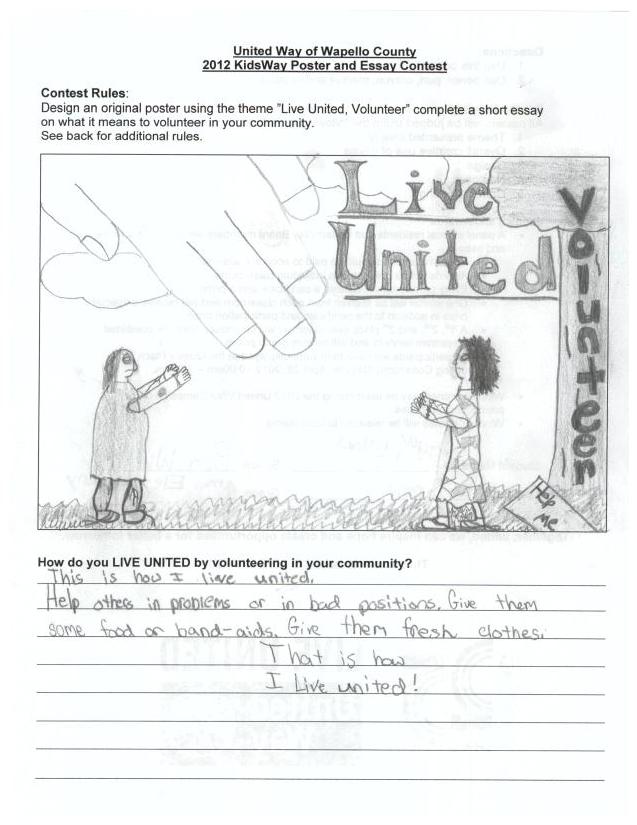 United Way of Wapello County
2012 KidsWay Poster and Essay Contest
Contest Rules:
Design an original poster using the theme "Live United, Volunteer" complete a short essay
on what it means to volunteer in your community.
See back for additional rules.
Live
United
Volunteer
Help
Me
How do you LIVE UNITED by volunteering in your community?
This is how I live united.
Help others in problems or in bad positions. Give them
some food or band-aids. Give them fresh clothes.
That is how
I Live united!